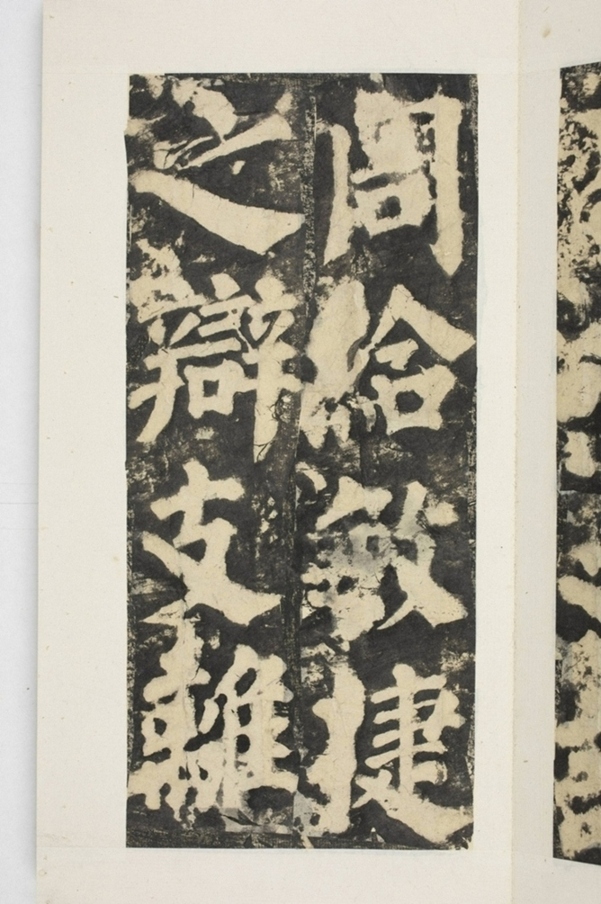 周給敏捷
之辯支離